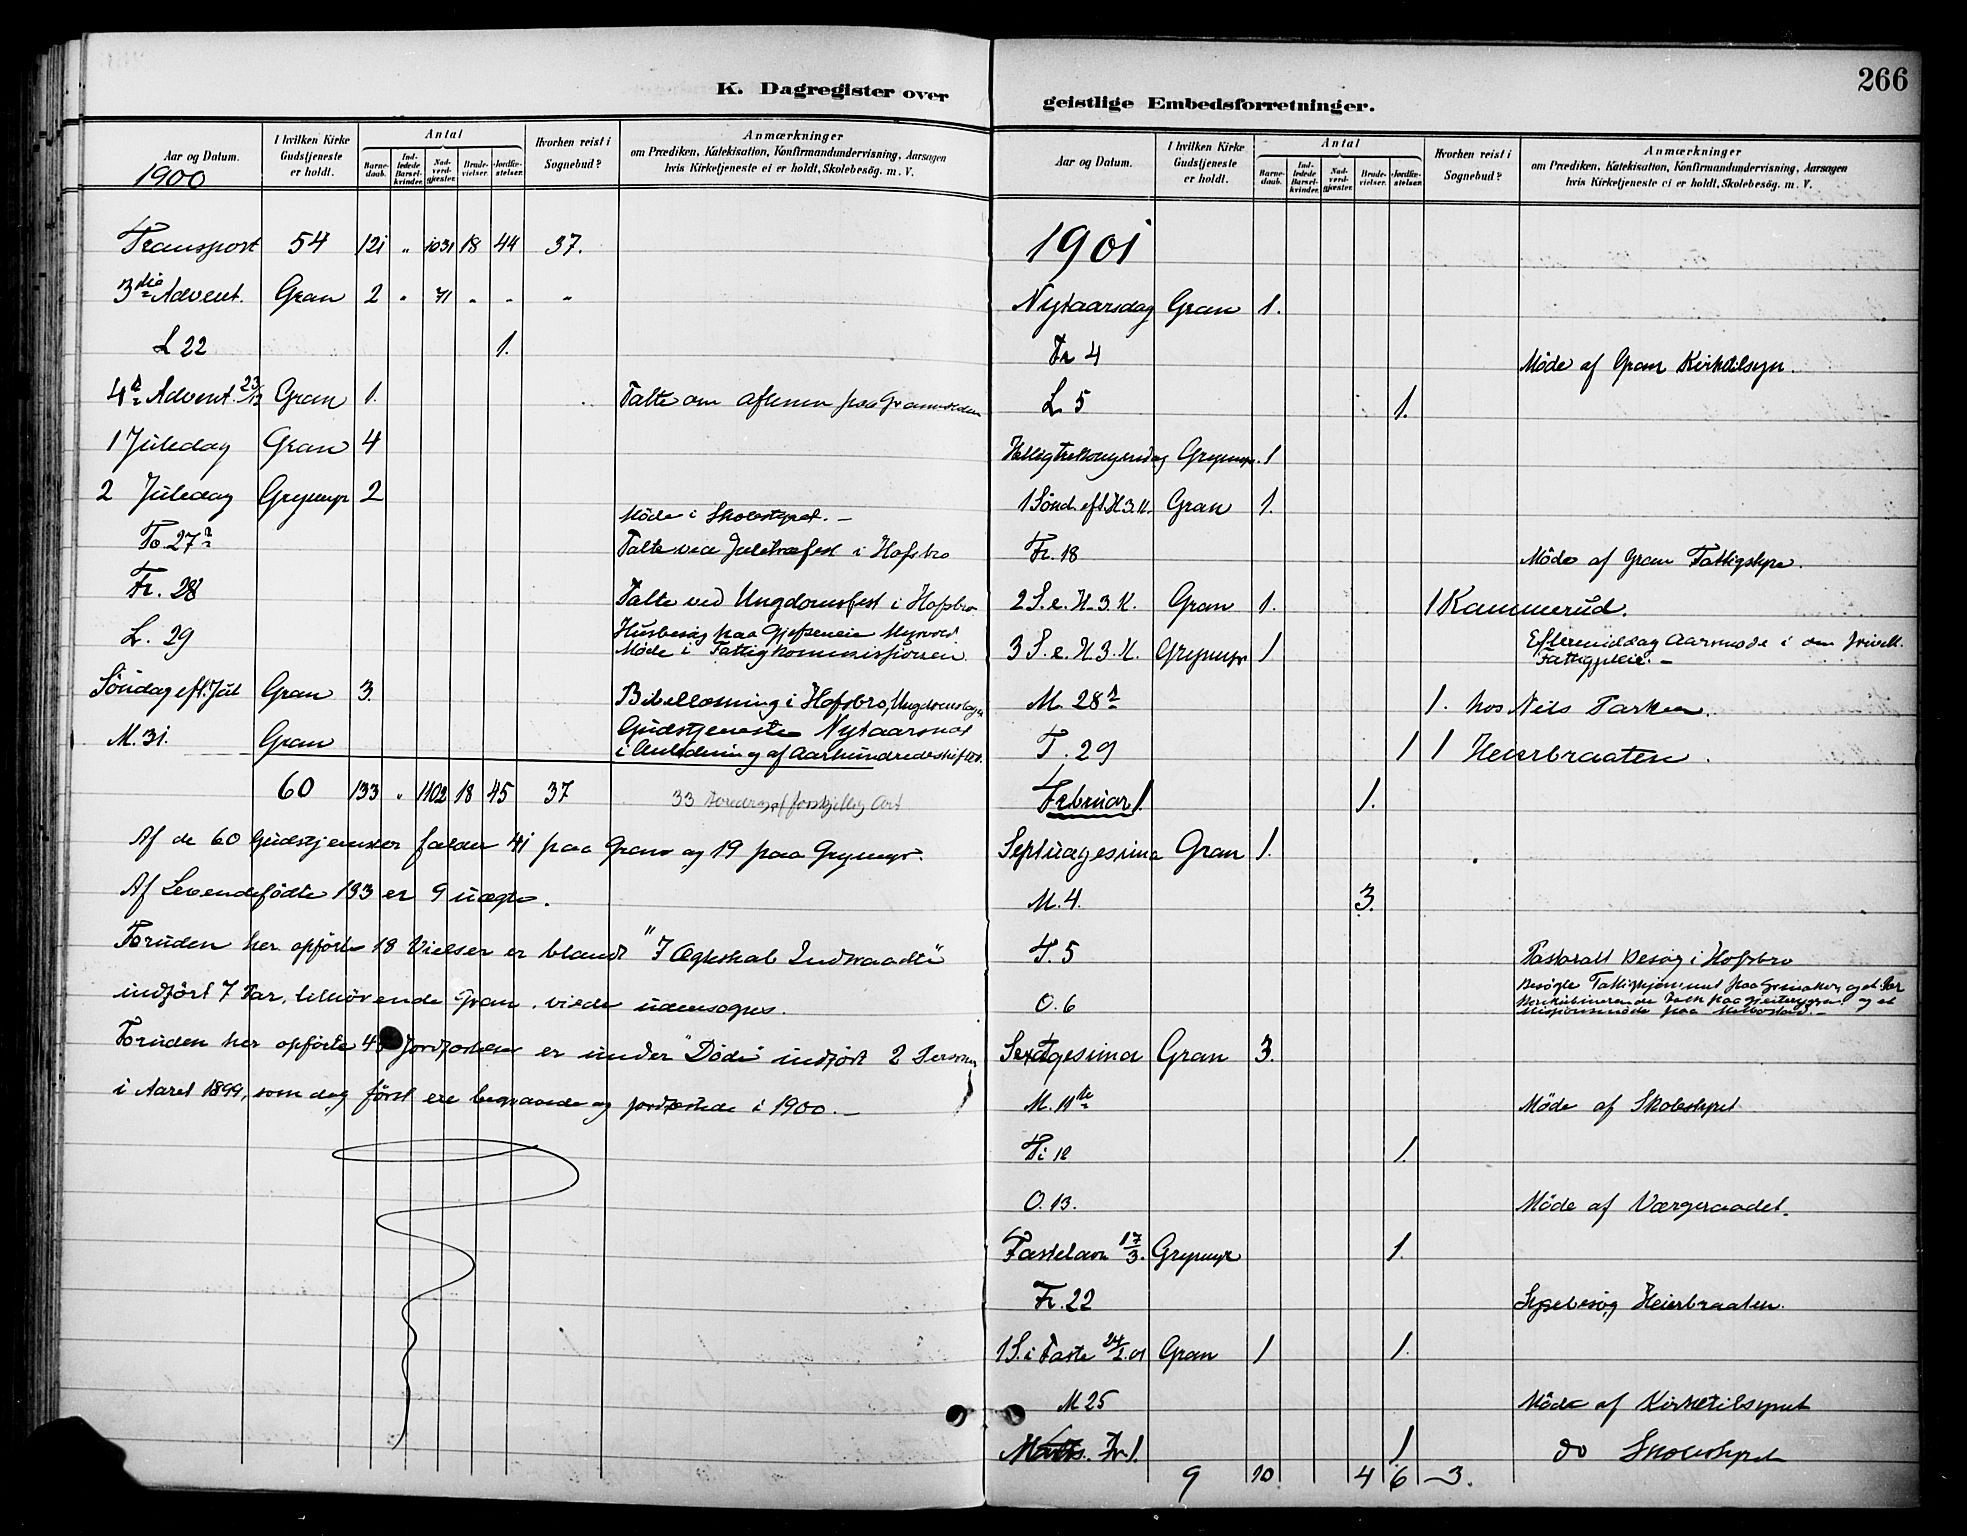 K. Dagregister over
Aar og Datum.
1900
I hvilken Kirke Gudstjeneste er holdt.
Antal
Barnedaab.
Indledede Barselkvinder.
Nadverdgjæster.
Brudevielser.
Jordfæstelser.
Hvorhen reist i Sognebud?
Anmærkninger
om Prædiken, Katekisation, Konfirmandundervisning, Aarsagen
hvis Kirketjeneste ei er holdt, Skolebesøg. m. V.
Transport 54 121 " 1031 18 44 37.
3die Advent. Gran 2 " 71 " " "
L 22 1.
4de Advent. 23/12 Gran 1. Talte om aftenen paa Granvolden
1 Juledag Gran 4
2 Juledag Grymyr 2
Møde i Skolestyret. –
To. 27de Talte ved Juletræfest i Hofsbro
Fr. 28 Talte ved Ungdomsfest i Hofsbro
L. 29 Husbesøg paa Gjefseneie Myrvold.
Møde i Fattigkommissionen.
Søndag eft. Jul Gran 3. Bibellæsning i Hofsbro, Ungdomslaget
M. 31. Gran Gudstjeneste Nytaarsnat
i Anledning af Aarhundredeskiftet.
60 133 " 1102 18 45 37 33 Foredrag af forskjellig Art
Af de 60 Gudstjenester falder 41 paa Gran og 19 paa Grymyr.
Af Levendefødte 133 er 9 uægte.
Foruden her opførte 18 Vielser er blandt "Ægteskab Indvaadte"
indført 7 Par, tilhørende Gran, viede udensogns.
Foruden her opførte 45 Jordfæstelser er under "Døde" indført 2 Personer
i Aaret 1899, som dog først ere begravede og jordfæstede i 1900. –
266
geistlige Embedsforretninger.
Aar og Datum.
I hvilken Kirke Gudstjeneste er holdt.
Antal
Barnedaab.
Indledede Barselkvinder.
Nadverdgjæster.
Brudevielser.
Jordfæstelser.
Hvorhen reist i Sognebud?
Anmærkninger
om Prædiken, Katekisation, Konfirmandundervisning, Aarsagen
hvis Kirketjeneste ei er holdt, Skolebesøg. m. V.
1901
Nytaarsdag Gran 1.
Fr 4 Møde af Gran Kirketilsyn.
L. 5 1.
Helligtrekongersdag Grymyr. 1
1 Sønd. eft. H.3.K. Gran 1.
Fr. 18 Møde af Gran Fattigstyre.
2 S. e. H. 3. K. Gran 1. 1 Kammerud.
3 S. e. H. 3. K. Grymyr 1 Eftermiddag Aarsmøde i den frivill.
Fattigpleie. –
M. 28de 1. hos Nils Parken.
T. 29 1 1 Heierbraaten.
Februar 1. 1.
Septuagesima Gran 1.
M. 4. 3.
T. 5 Pastoralt Besøg i Hofsbro
O. 6
Sexagesima Gran 3.
M. 11te Møde af Skolestyret
Ti 12 1.
O. 13. Møde af Værgeraadet.
Fastelavn 17/3. Grymyr 1.
Fr. 22 Sygebesøg Heierbraaten.
1 S. i Faste 24/2.01 Gran 1 1.
M 25 Møde af Kirketilsynet
Marts. Fr 1. 1 do Skolestyret
9 10 4 6 – 3.